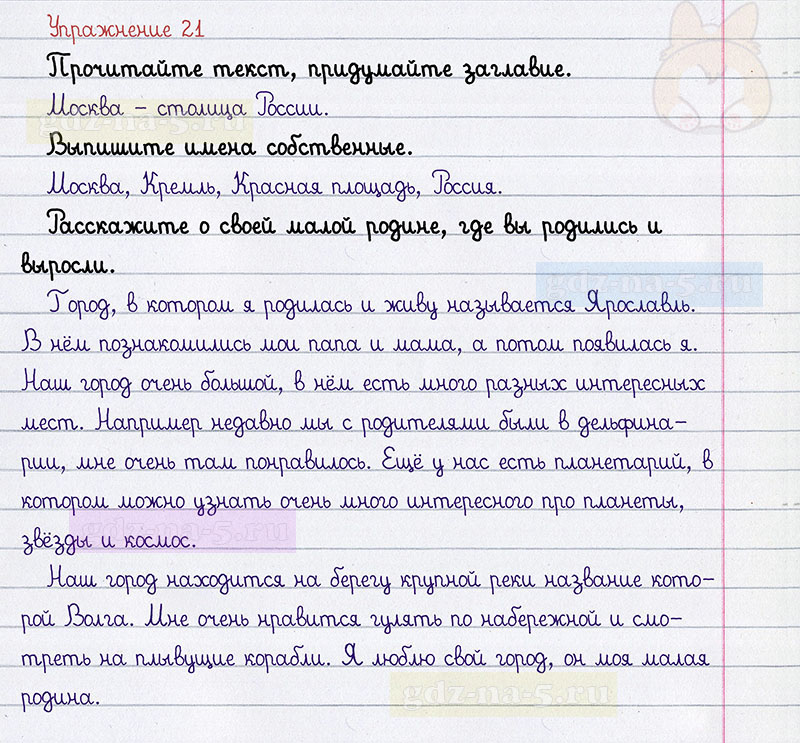 Упражнение 21
Прочитайте текст, придумайте заглавие.
Москва – столица России.
gdz-na-5.ru
Выпишите имена собственные.
Москва, Кремль, Красная площадь, Россия.
Расскажите о своей малой родине, где вы родились и
выросли.
gdz-na-5.ru
Город, в котором я родилась и живу называется Ярославль.
В нём познакомились мои папа и мама, а потом появилась я.
Наш город очень большой, в нём есть много разных интересных
мест. Например недавно мы с родителями были в дельфина–
рии, мне очень там понравилось. Ещё у нас есть планетарий, в
котором можно узнать очень много интересного про планеты,
звёзды и космос.
gdz-na-5.ru
Наш город находится на берегу крупной реки название кото–
рой Волга. Мне очень нравится гулять по набережной и смо–
треть на плывущие корабли. Я люблю свой город, он моя малая
родина.
gdz-na-5.ru